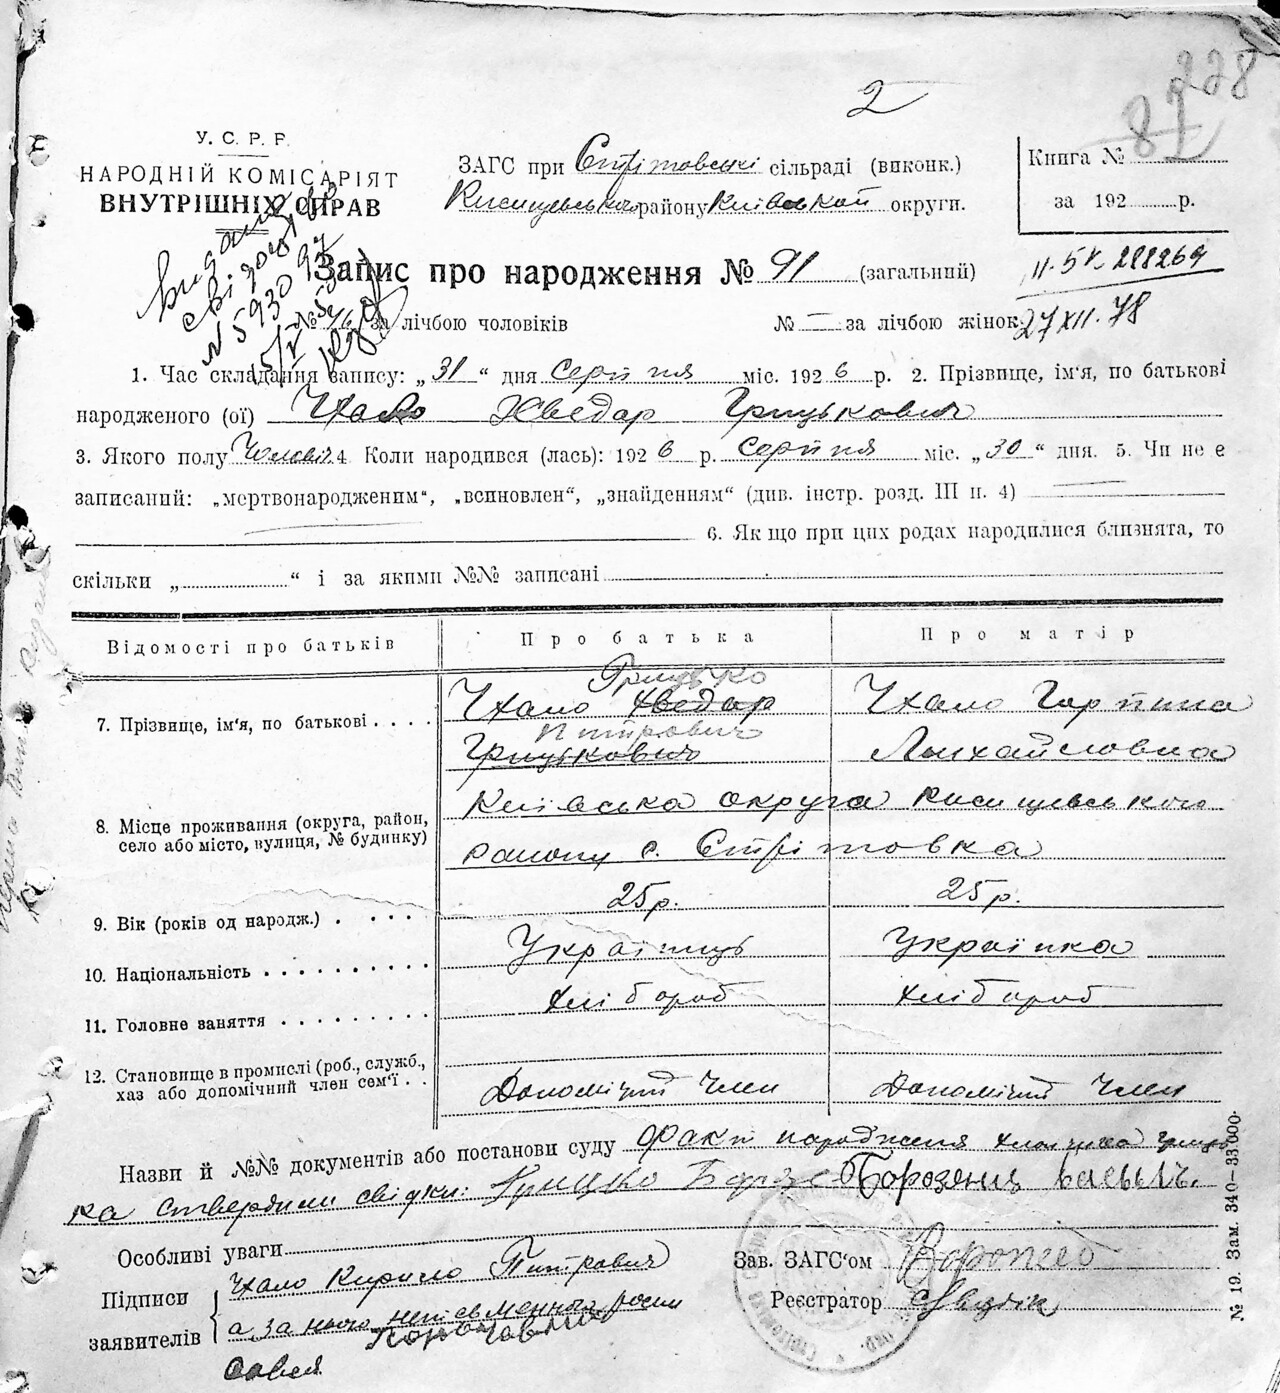 2
228
87
У. С. Р. Р.
НАРОДНІЙ КОМІСАРІЯТ
ВНУТРІШНІХ СПРАВ
ЗАГС при Стрітовські сільраді (виконк.)
Кисищевського району Київської округи.
Книга №
за 192 р.
Запис про народження № 91 (загальний)
II-БК 288269
27 XII. 78
видано
N 593097
№ за лічбою чоловіків
№ — за лічбою жінок
1. Час складання запису: „31“ дня серпня міс. 1926 р. 2. Прізвище, ім'я, по батькові
народженого (ої) Чхало Хведар Грицькович
3. Якого полу Чоловіч. 4 Коли народився (лась): 1926 р. серпня міс. „30“ дня. 5. Чи не є
записаний: „мертвонародженим“, „всиновлен“, „знайденням“ (див. інстр. розд. III п. 4)
6. Якщо при цих родах народилися близнята, то
скільки „ “ і за якими №№ записані
Відомості про батьків
Про батька
Про матір
Грицько
7. Прізвище, ім'я, по батькові . . . .
Чхало Хведар
Чхало Горпина
Питрович
Грицькович
Михайловна
8. Місце проживання (округа, район, село або місто, вулиця, № будинку)
Київська округа Кисищевського
району с. Стрітовка
9. Вік (років од народж.) . . . .
25р.
25р.
10. Національність . . . . . . . . . .
Українць
Українка
11. Головне заняття . . . . . . . . .
хлібороб
хлібороб
12. Становище в промислі (роб., служб., хаз або допомічний член сем'ї . .
Допомічний Член
Допомічний Член
Назви й №№ документів або постанови суду Факт народження хлопчика Грицъ
ка ствердили свідки: Грицько Борзе Борозенець Васыль.
Особливі уваги
Підписи
заявителів
Чхало Кирило Питрович
а за нього неписьменного росп
Савея
Зав. ЗАГС'ом Воропаєв
Реєстратор
№ 19. Зам. 340—33.000.